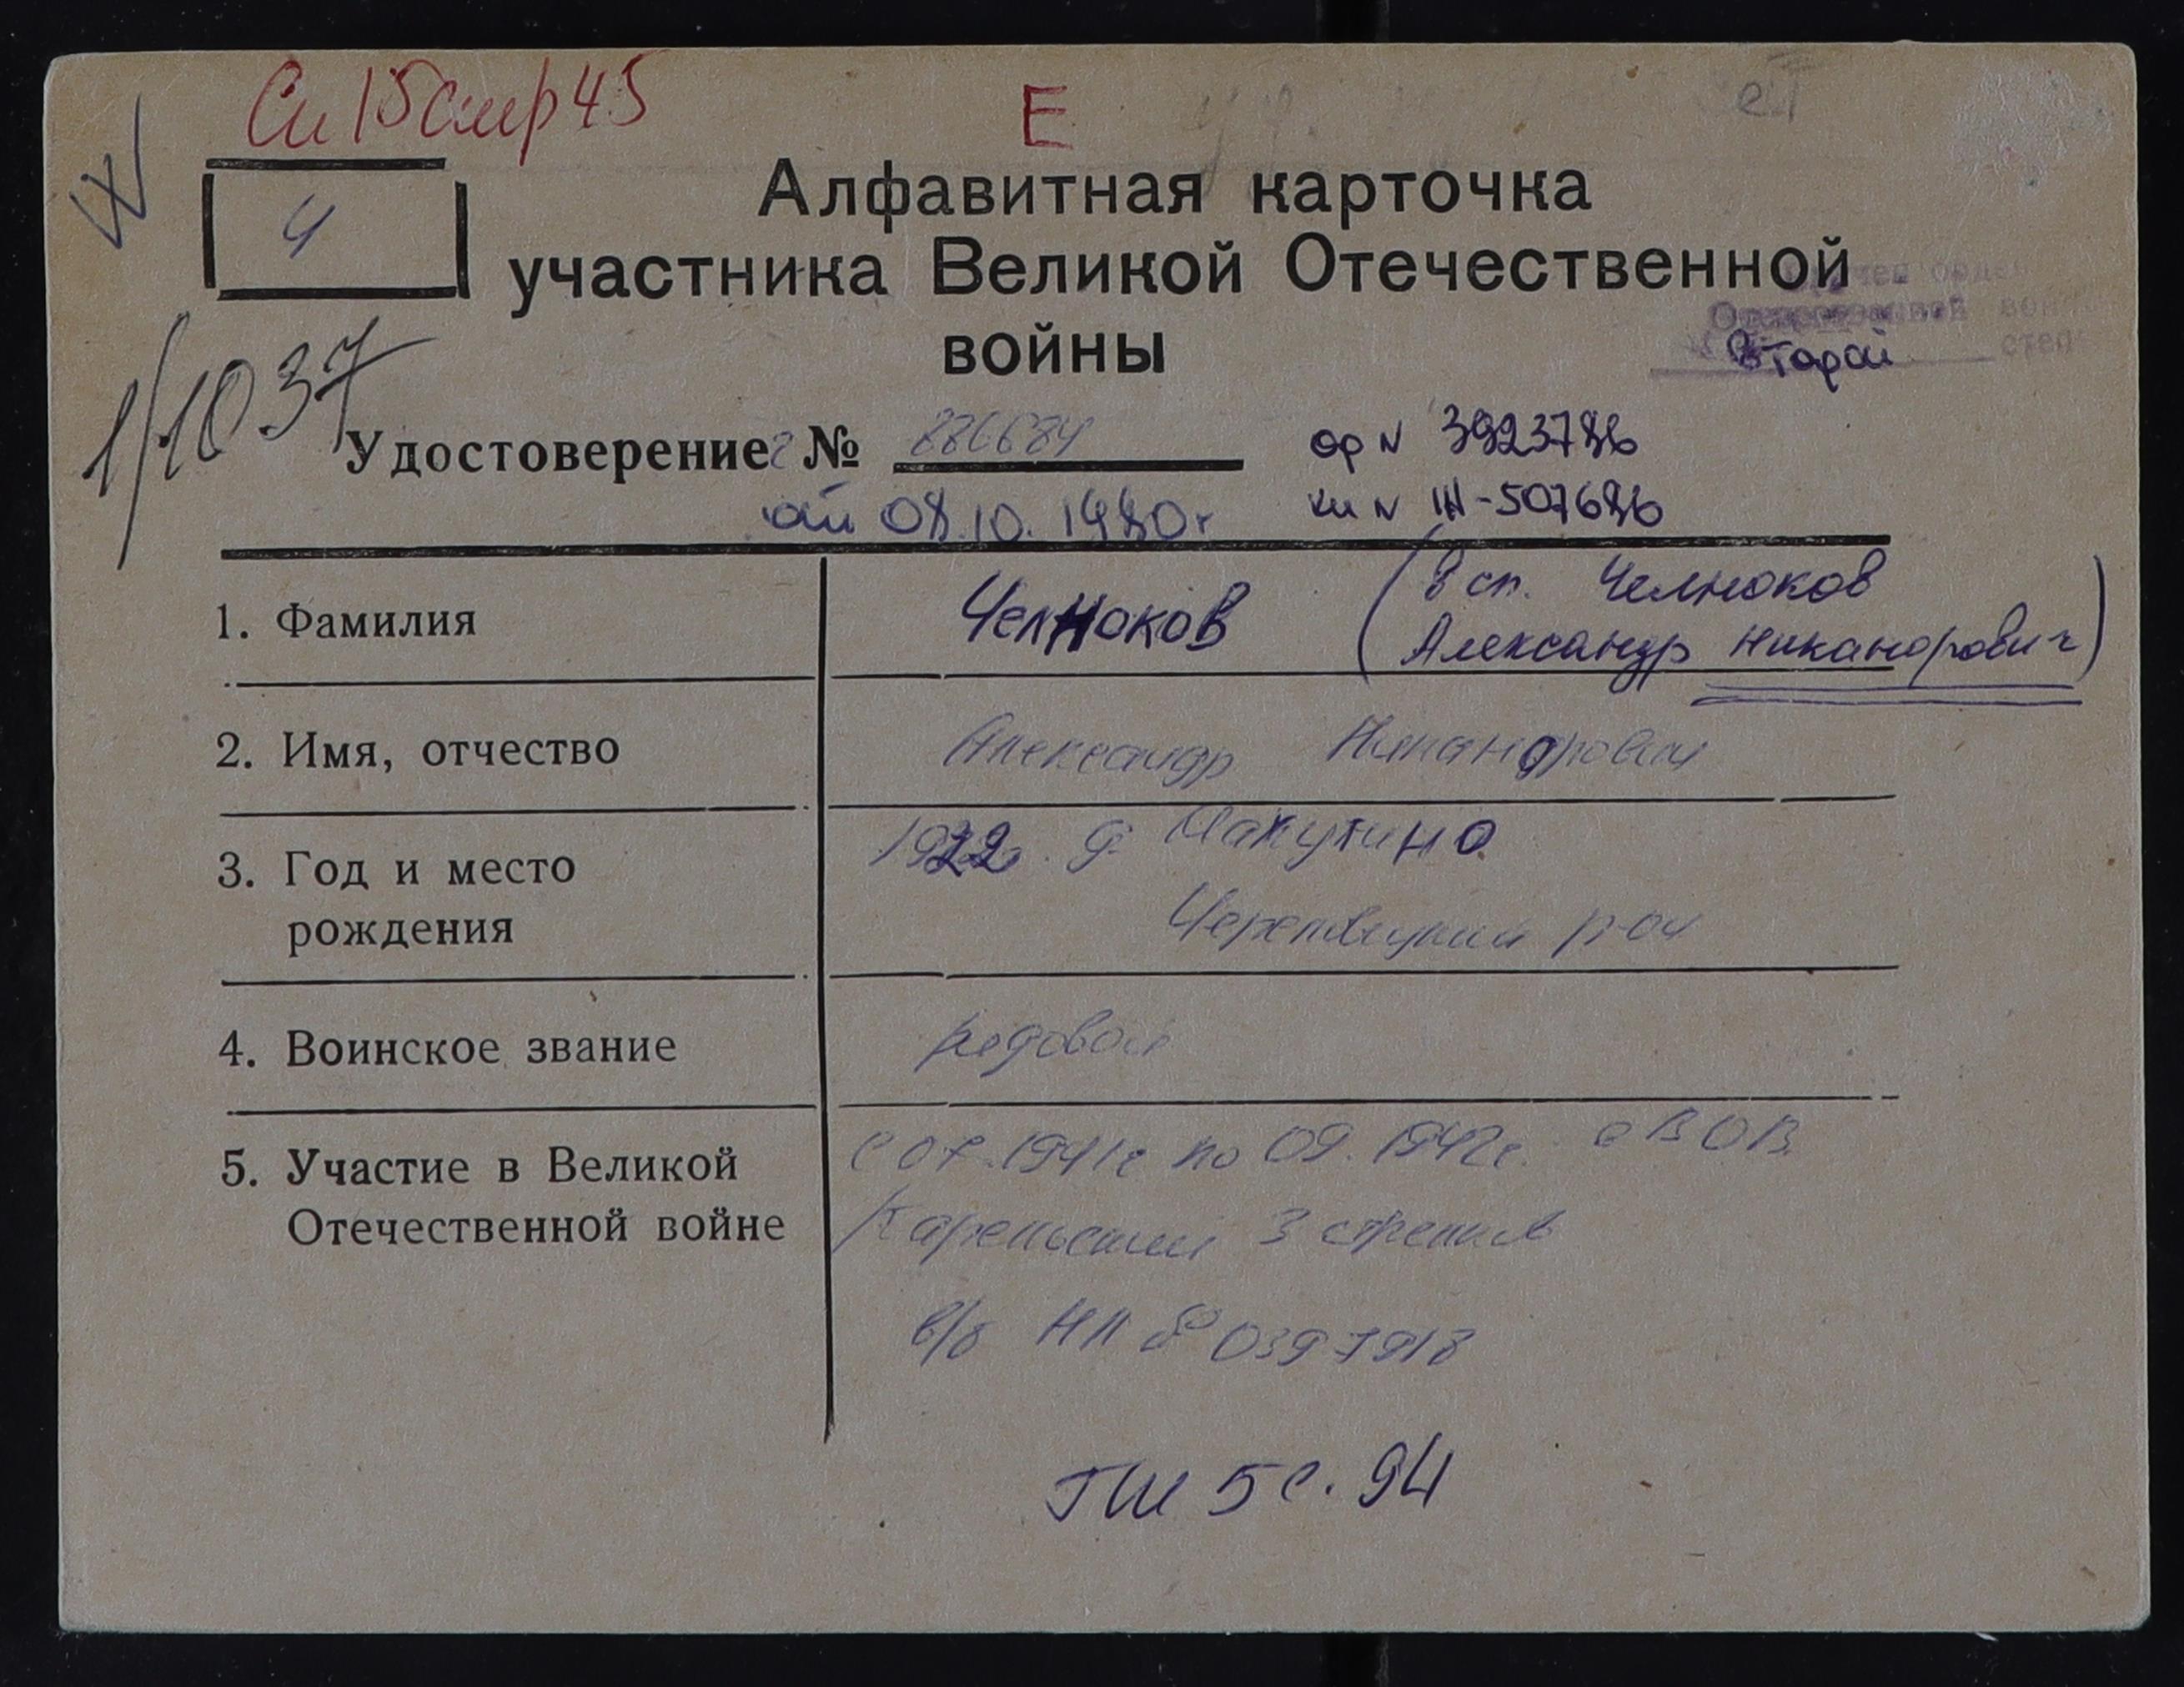 Си 15 смр 45
Е
Ч
1/1037
Алфавитная карточка
участника Великой Отечественной
войны
вручен орден
Отечественной войны
второй степ
Удостоверение № 886684
ор N 3923786
от 08.10.1980г
кн N 507686
1. Фамилия
Челноков
(в сп. Челноков
Александр Никанорович)
2. Имя, отчество
Александр Никанорович
3. Год и место
рождения
1922г. д.
Череповецкий р-он
4. Воинское звание
рядовой
5. Участие в Великой
Отечественной войне
с 07.1941г по 09.1942г. с ВОВ.
Карельский 3 стрелков
в/б НП № 0397918
ГШ 5 с. 94